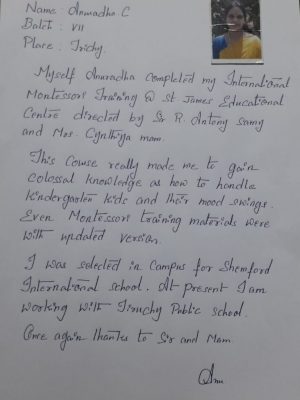 Name : Anuradha C
Batch : VII
Place : Trichy.
Myself Anuradha completed my International
Montessori Training @ St. James Educational
Centre directed by Sir R. Antony Samy
and Mrs. Cynthiya mam.
This Couse really made me to gain
colossal knowledge as how to handle
kindergarten kids and their mood swings.
Even Montessori training materials were
with updated version.
I was selected in Campus for Shemford
International school. At present I am
working with Tiruchy Public school.
Once again thanks to Sir and Mam.
Anu